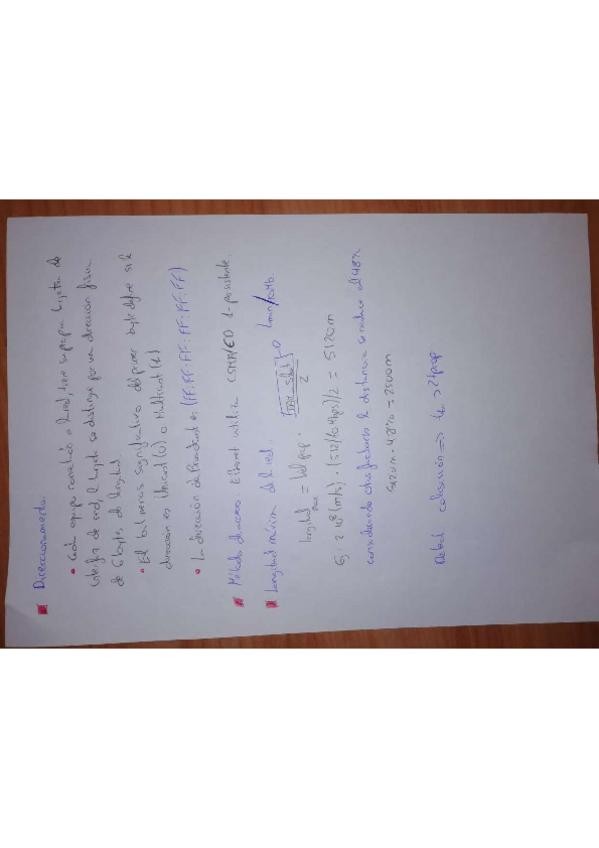 Direccionamiento.
• Cada equipo conectado a la red, tiene su propia tarjeta de
interfaz de red, la tarjeta se distingue por una dirección física
de 6 bytes de longitud.
• El bit menos significativo del primer byte define si la
dirección es Unicast (0) o Multicast (1)
• La dirección de Broadcast es (FF:FF:FF:FF:FF:FF)
Método de acceso Ethernet utiliza CSMA/CD 1-persistente.
Longitud máxima de la red.
longitud max = Vel prop ·
2
Ej: 2·10⁸ (m/s) · (512/(10 Mbps))/2 = 5120m
considerando otros factores la distancia se reduce al 48%
5120m · 48% = 2500m
Detect colisión => tx > 2tprop